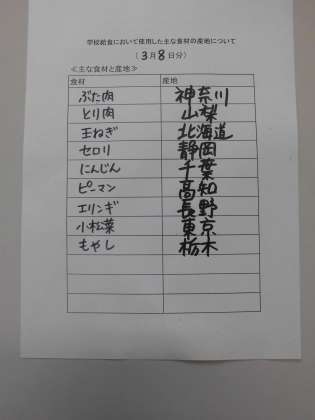 学校給食において使用した主な食材の産地について
(3月8日分)
≪主な食材と産地≫
食材 産地
ぶた肉 神奈川
とり肉 山梨
玉ねぎ 北海道
セロリ 静岡
にんじん 千葉
ピーマン 高知
エリンギ 長野
小松菜 東京
もやし 栃木